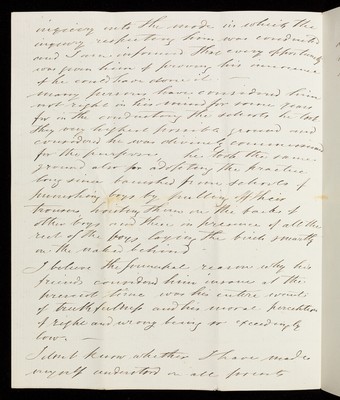 inquiry into the mode in which the
inquiry respecting him was conducted
and I am informed that every opportunity
was given him of proving his innocence
if he could have done it —
Many persons have considered him
not right in his mind for some years
for in the conducting the schools he took
the very highest possible ground and
considered he was divinely commissioned
for the purpose he took the same
ground also for adopting the practice
long since banished from schools of
punishing boys by pulling off their
trousers hoisting them on the backs of
other boys and then in presence of all the
rest of the boys laying the birch smartly
on the naked behind —
I believe the principal reason why his
friends considered him insane at the
present time was his entire want
of truthfulness and his moral perception
of right and wrong being so exceedingly
low —
I don't know whether I have made
myself understood on all points